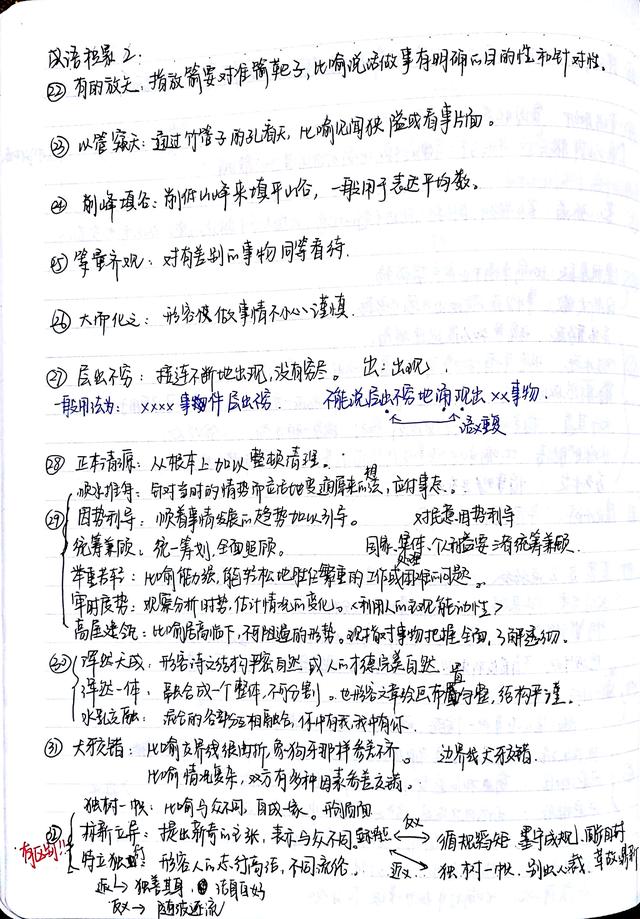 汉语积累 2.
㉒ 有的放矢：指放箭要对准箭靶子，比喻说话做事有明确的目的性和针对性。
㉓ 以管窥天：通过竹管子的孔看天，比喻见闻狭隘或看事片面。
㉔ 削峰填谷：削低山峰来填平山谷，一般用于表达平均数。
㉕ 等量齐观：对有差别的事物同等看待.
㉖ 大而化之：形容做事情不小心谨慎.
㉗ 层出不穷：接连不断地出现，没有穷尽。 出：出现
一般用法为： xxxx 事件层出不穷. 不能说层出不穷地涌现出xx事物.
语义重复
㉘ 正本清源：从根本上加以整顿清理。
顺水推舟：针对当时的情势而应法地 原来的想法，应付事态。
㉙ 因势利导：顺着事情发展的趋势加以引导。 因势利导
统筹兼顾：统一筹划，全面照顾。 国家、集体、个人利益要 统筹兼顾.
举重若轻：比喻能力强，能够轻松地胜任繁重的工作或处理困难的问题。
审时度势：观察分析时势，估计情况的变化。<利用人的主观能动性>
高屋建瓴：比喻居高临下，不可阻遏的形势。现指对事物把握全面，了解透彻。
㉚ 浑然天成：形容诗文结构严密自然或人的才德完美自然.
浑然一体：融合成一个整体，不可分割。也形容文章绘画布置匀整，结构严谨。
水乳交融：混合的各部分互相融合，你中有我我中有你.
㉛ 犬牙交错：比喻交界线很曲折，象狗牙那样参差不齐。 边界线犬牙交错.
比喻情况复杂，双方有多种因素参差交错。
独树一帜：比喻与众不同，自成一家。
㉜ 标新立异：提出新奇的主张，表示与众不同. 反义 循规蹈矩、墨守成规、
有区别!! 特立独行：形容人的志行高洁，不同流俗. 近义 独树一帜、别出心裁、
近义 独善其身、洁身自好
反义 随波逐流